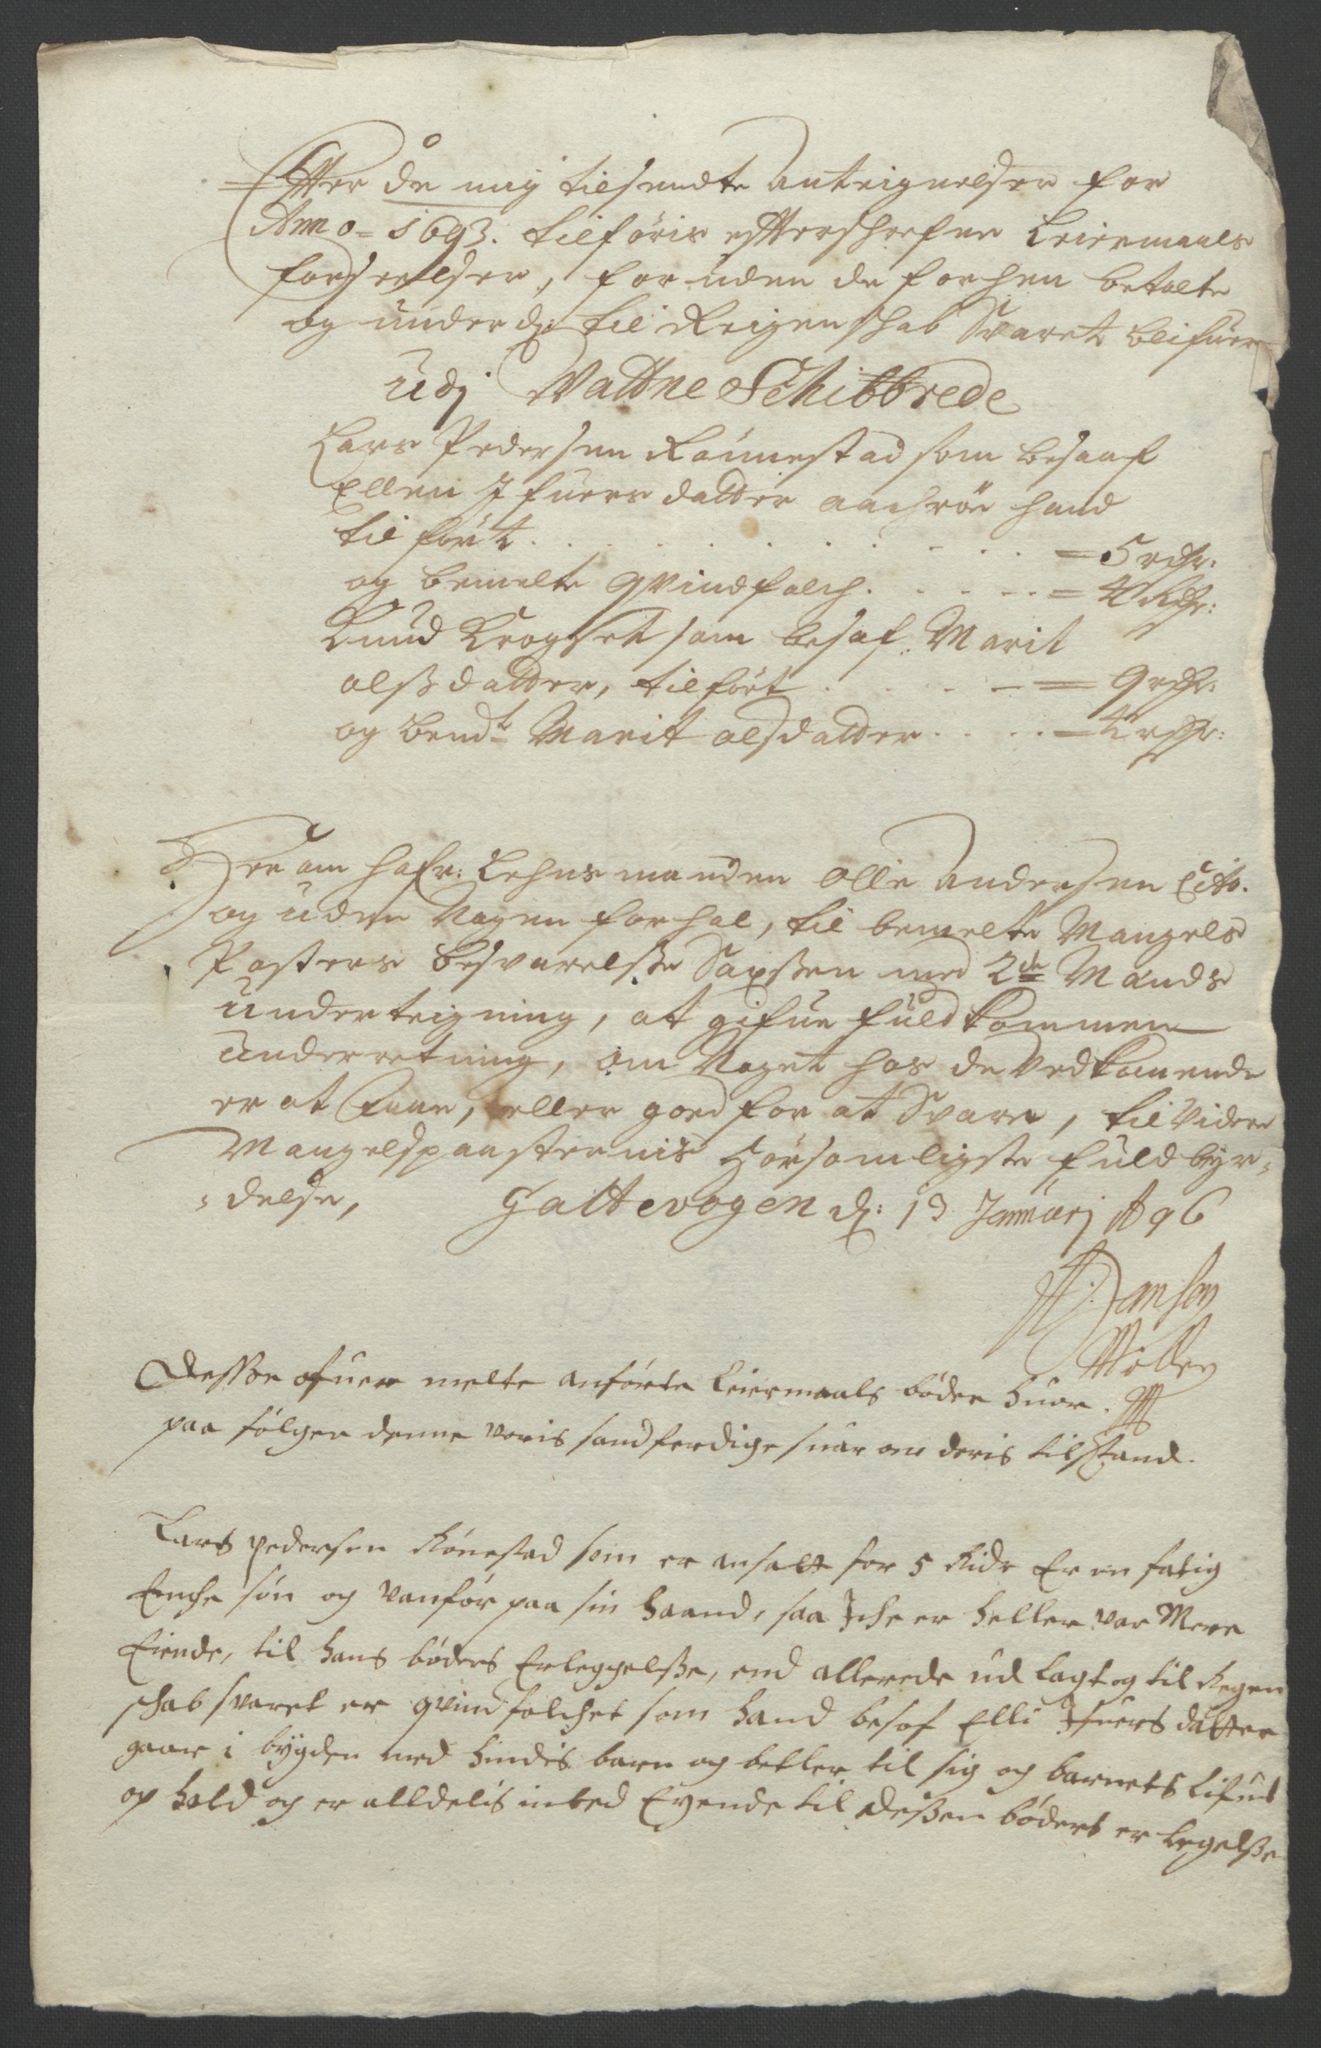 Effter de mig tilsendte Anteignelser for
Anno 1693. tilføris effterschrefne Leiermaals
forseelser, foruden de forhen betalte
og under d: til Reigenschab Svaret blifuer
udj Vattne Schibbrede
Lars Pedersen Rönnestad som besaaf
Ellen Ifuersdatter hand
tilført . . . . . = 5 rdr:
og bemelte qvindfolch . . . . = 4 Rdr:
Knud Krogset som besof Marit
olsdatter, tilført . . . = 9 rdr:
og bemdt Marit olsdatter . . . = 4 rdr:
Hvorom hafr: Lehnsmanden Olle Andersen Cito.
og uden Nogen forhal, til bemelte Mangels
Posters besvarelsse med 2de Mænds
underteigning, at gifue fuldkommen
underretning, om Noget hos de Vedkomende
er at finne, eller goed for at Svare, til videre
Mangelspaasternis Hörsomligste fuldbyr-
-delse, Galtevogen d: 13 Januarj Ao 96
H: Jansen
Möller
Desse ofuer melte anførte Leiermaals böder huor
paa følger denne voris sandferdige suar om deris tilstand.
Lars pedersen Rönestad som er ansatt for 5 Ridr Er en fatig
Enche søn og vanför paa sin haand, saa Iche er heller var Mere
Eiende, til hans böders Erleggelsse, end allerede ud lagt og til Regen
schab svaret er qvindfolchet som hand besof Elli Ifuers datter
gaar i bygden med hindis barn og betler til sig og barnets Lifuis
op hold og er alldelis intet Eyende til dessen böders er legelsse